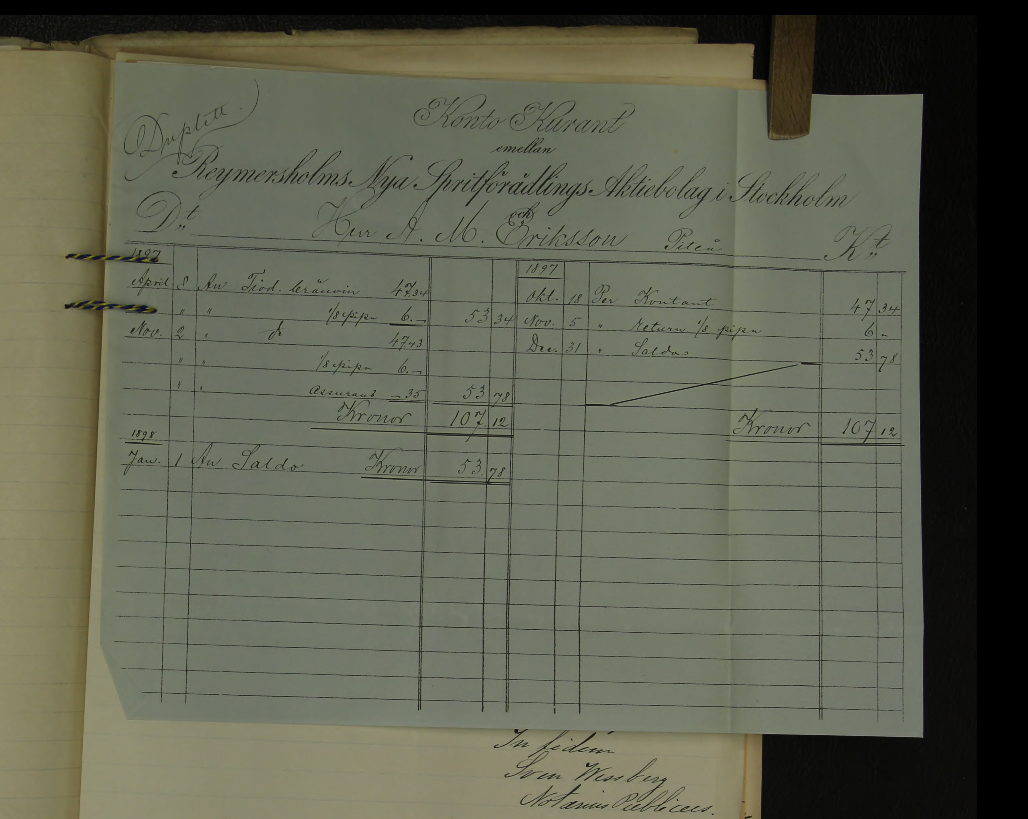 Duplett
Konto Kurant
emellan
Reymersholms Nya Spritförädlings Aktiebolag i Stockholm
och
Dt Herr A. M. Eriksson Piteå Kt
1897 1897
April 8 An Tiod. bränvin 47 34 Okt. 18 Per Kontant 47 34
" " 1/8 pipa 6.— 53 34 Nov. 5 " Return 1/8 pipa 6 –
Nov. 2 " do 47 43 Dec. 31 " Saldo 53 78
" " 1/8 pipa 6.—
" " Assurans — 35 53 78
Kronor 107 12 Kronor 107 12
1898
Jan. 1 An Saldo Kronor 53 78
In fidem
Sven Wessberg
Notarius Publicus.